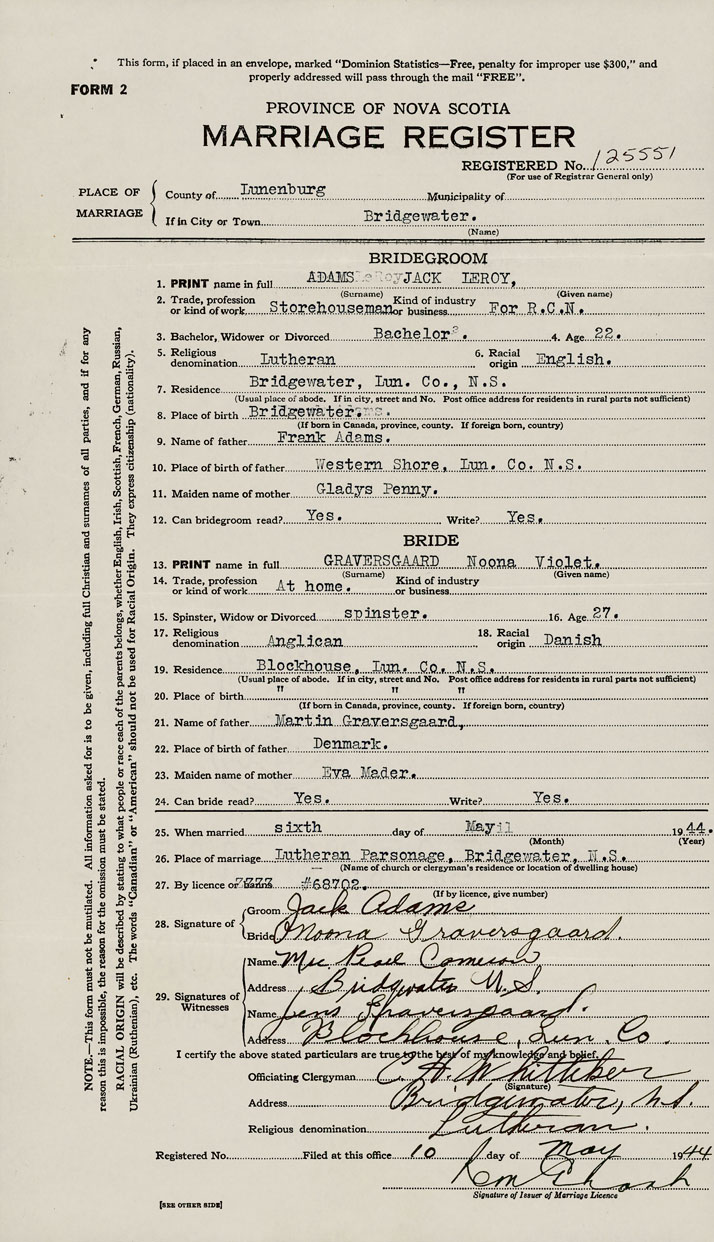 This form, if placed in an envelope, marked "Dominion Statistics—Free, penalty for improper use $300," and
properly addressed will pass through the mail "FREE".
FORM 2
PROVINCE OF NOVA SCOTIA
MARRIAGE REGISTER
REGISTERED No. 125551
(For use of Registrar General only)
PLACE OF MARRIAGE
County of Lunenburg Municipality of
If in City or Town Bridgewater.
(Name)
BRIDEGROOM
1. PRINT name in full ADAMS JACK LEROY,
(Surname) (Given name)
2. Trade, profession or kind of work Storehouseman Kind of industry or business For R.C.N.
3. Bachelor, Widower or Divorced Bachelor. 4. Age 22.
5. Religious denomination Lutheran 6. Racial origin English.
7. Residence Bridgewater, Lun. Co., N.S.
(Usual place of abode. If in city, street and No. Post office address for residents in rural parts not sufficient)
8. Place of birth Bridgewater.
(If born in Canada, province, county. If foreign born, country)
9. Name of father Frank Adams.
10. Place of birth of father Western Shore, Lun. Co. N.S.
11. Maiden name of mother Gladys Penny.
12. Can bridegroom read? Yes. Write? Yes.
BRIDE
13. PRINT name in full GRAVERSGAARD Noona Violet.
(Surname) (Given name)
14. Trade, profession or kind of work At home. Kind of industry or business
15. Spinster, Widow or Divorced spinster. 16. Age 27.
17. Religious denomination Anglican 18. Racial origin Danish
19. Residence Blockhouse, Lun. Co. N.S.
(Usual place of abode. If in city, street and No. Post office address for residents in rural parts not sufficient)
20. Place of birth " " "
(If born in Canada, province, county. If foreign born, country)
21. Name of father Martin Graversgaard,
22. Place of birth of father Denmark.
23. Maiden name of mother Eva Mader.
24. Can bride read? Yes. Write? Yes.
25. When married sixth day of May 1944.
(Month) (Year)
26. Place of marriage Lutheran Parsonage, Bridgewater, N.S.
(Name of church or clergyman's residence or location of dwelling house)
27. By licence or banns #68702.
(If by licence, give number)
28. Signature of
Groom Jack Adams
Bride Noona Graversgaard.
29. Signatures of Witnesses
Name Mrs Pearl Cameron
Address Bridgewater N.S.
Name Jens Graversgaard.
Address Blockhouse, Lun. Co.
I certify the above stated particulars are true to the best of my knowledge and belief.
Officiating Clergyman C. H. Whitteker
(Signature)
Address Bridgewater, N.S.
Religious denomination Lutheran.
Registered No. Filed at this office 10 day of May 1944
Signature of Issuer of Marriage Licence
[SEE OTHER SIDE]
NOTE.—This form must not be mutilated. All information asked for is to be given, including full Christian and surnames of all parties, and if for any
reason this is impossible, the reason for the omission must be stated.
RACIAL ORIGIN will be described by stating to what people or race each of the parents belongs, whether English, Irish, Scottish, French, German, Russian,
Ukrainian (Ruthenian), etc. The words "Canadian" or "American" should not be used for Racial Origin. They express citizenship (nationality).